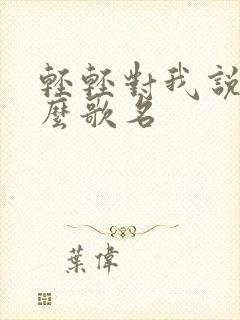 輕輕對我說
麼歌名
葉偉